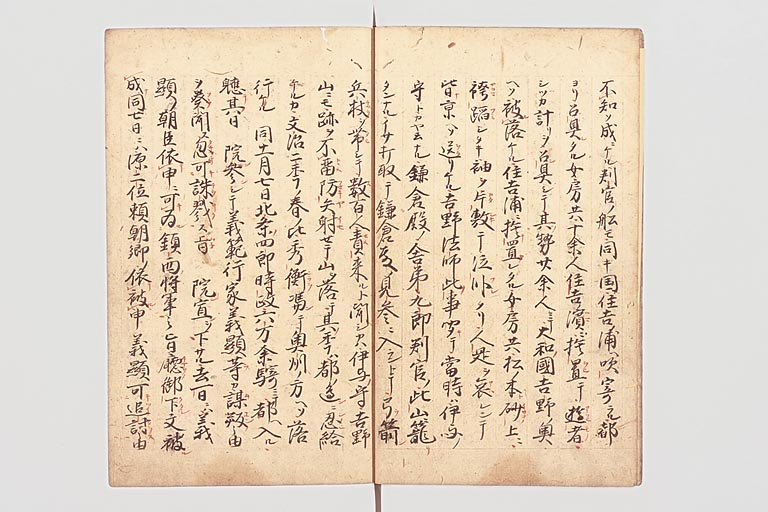 不知ラ成ニケル判官ノ船モ同キ国住吉浦ニ吹寄ラル都
ヨリ召具タル女房共十余人住吉濱ニ捨置テ遊者
シツカ計リヲ召具シテ其勢廿余人ニテ大和國吉野奥
ヘソ被落ケル住吉浦ニ捨置レタル女房共ハ松本砂上ニ
袴踏シタキ袖ヲ片敷テ泣臥タリ人是ヲ哀レミテ
皆京ヘソ送リケル吉野法師此事聞テ當時ハ伊与ノ
守トカ云ナル鎌倉殿ノ舎弟九郎判官ノ此山ニ籠
タンナルイサ打取テ鎌倉殿見参ニ入ントテ弓箭
兵杖ヲ帯シテ数百人責来ルト聞シカハ伊与守吉野
山ニモ跡ヲ不留防矢射セテ山ヲ落テ其季ハ都ノ邊ニ忍給
ケルカ文治二季ノ春比秀衡憑テ奥州ノ方ヘソ落
行ケル 同十一月七日北条四郎時政六万余騎ニテ都ヘ入ル
聽其日 院参シテ義範行家義顕等カ謀叛ノ由
ヲ奏聞ス忽可誅戮ス旨 院宣ヲ下サル去一日ニハ義
顕カ朝臣依申ニ可為鎮西将軍之旨廳御下文被
成同七日ニハ源二位頼朝卿依被申義顕可追討由